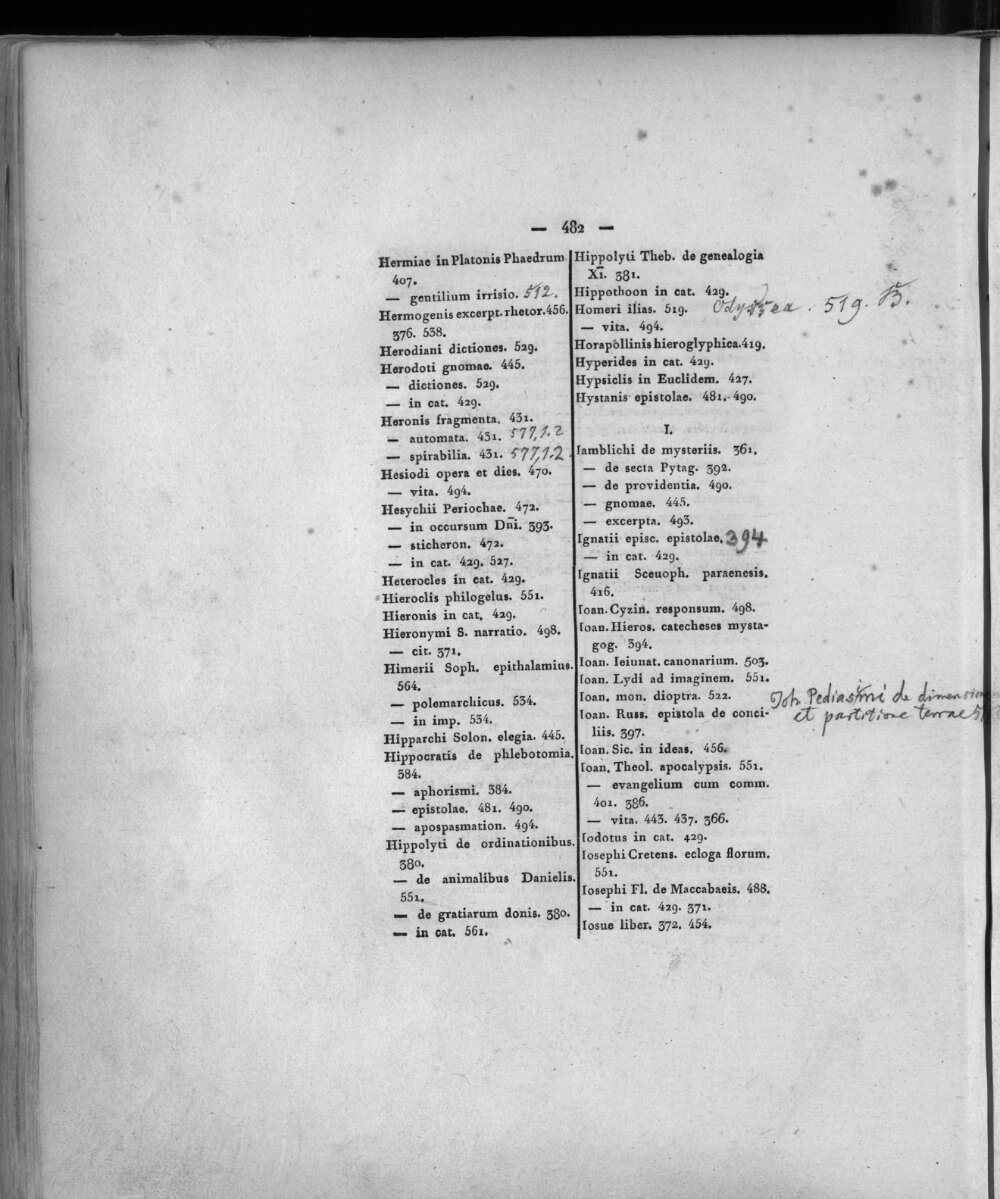 — 482 —
Hermiae in Platonis Phaedrum
407.
— gentilium irrisio. 512.
Hermogenis excerpt. rhetor. 456.
376. 538.
Herodiani dictiones. 529.
Herodoti gnomae. 445.
— dictiones. 529.
— in cat. 429.
Heronis fragmenta. 431.
— automata. 431. 577,1.2
— spirabilia. 431. 577,1.2.
Hesiodi opera et dies. 470.
— vita. 494.
Hesychii Periochae. 472.
— in occursum Dn̄i. 393.
— sticheron. 472.
— in cat. 429. 527.
Heterocles in cat. 429.
Hieroclis philogelus. 551.
Hieronis in cat. 429.
Hieronymi S. narratio. 498.
— cit. 371.
Himerii Soph. epithalamius.
564.
— polemarchicus. 534.
— in imp. 534.
Hipparchi Solon. elegia. 445.
Hippocratis de phlebotomia.
384.
— aphorismi. 384.
— epistolae. 481. 490.
— apospasmation. 494.
Hippolyti de ordinationibus.
380.
— de animalibus Danielis.
551.
— de gratiarum donis. 380.
— in cat. 561.
Hippolyti Theb. de genealogia
X̄ı. 381.
Hippothoon in cat. 429.
Homeri ilias. 519. Odyssea. 519. B.
— vita. 494.
Horapollinis hieroglyphica. 419.
Hyperides in cat. 429.
Hypsiclis in Euclidem. 427.
Hystanis epistolae. 481. 490.
I.
Iamblichi de mysteriis. 361.
— de secta Pytag. 392.
— de providentia. 490.
— gnomae. 445.
— excerpta. 493.
Ignatii episc. epistolae. 394
— in cat. 429.
Ignatii Sceuoph. paraenesis.
416.
Ioan. Cyzin. responsum. 498.
Ioan. Hieros. catecheses mysta-
gog. 394.
Ioan. Ieiunat. canonarium. 503.
Ioan. Lydi ad imaginem. 551.
Ioan. mon. dioptra. 522.
Joh. Pediasimi de dimension
et partitione terrae 5
Ioan. Russ. epistola de conci-
liis. 397.
Ioan. Sic. in ideas. 456.
Ioan. Theol. apocalypsis. 551.
— evangelium cum comm.
401. 386.
— vita. 443. 437. 366.
Iodotus in cat. 429.
Iosephi Cretens. ecloga florum.
551.
Iosephi Fl. de Maccabaeis. 488.
— in cat. 429. 371.
Iosue liber. 372. 454.